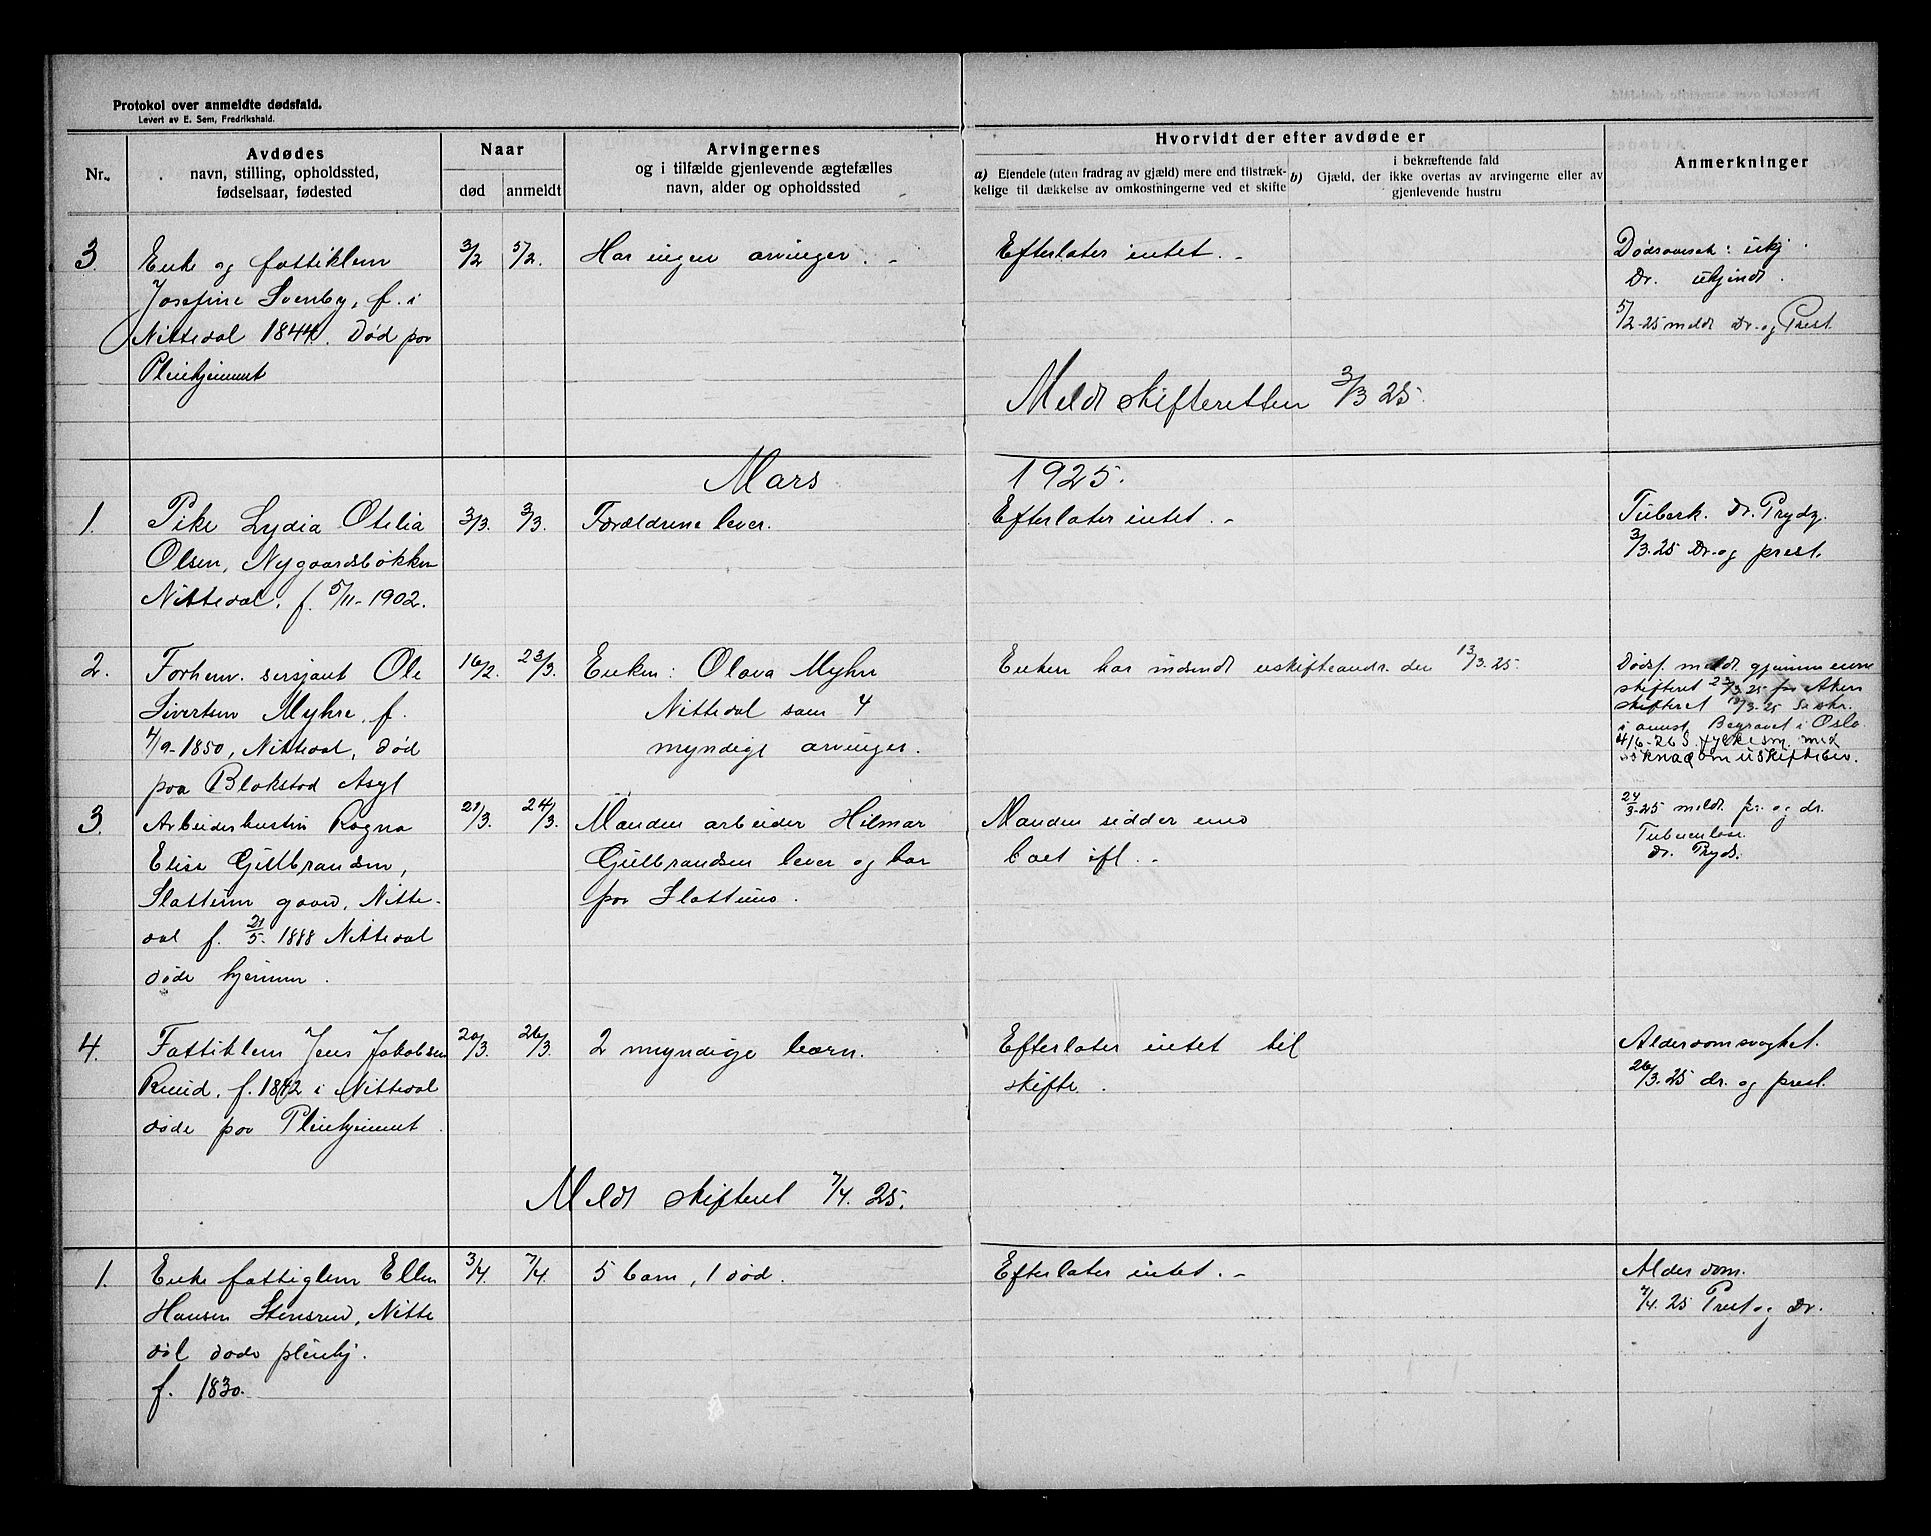 Protokol over anmeldte dødsfald.
Levert av E. Sem, Fredrikshald.
Nr.
Avdødes
navn, stilling, opholdssted,
fødselsaar, fødested
Naar
død
anmeldt
Arvingernes
og i tilfælde gjenlevende ægtefælles
navn, alder og opholdssted
Hvorvidt der efter avdøde er
a) Eiendele (uten fradrag av gjæld) mere end tilstræk-
kelige til dækkelse av omkostningerne ved et skifte
i bekræftende fald
b) Gjæld, der ikke overtas av arvingerne eller av
gjenlevende hustru
Anmerkninger
3.
Enke og fattiklem
Josefine Svenby, f. i
Nittedal 1844. Død paa
Pleiehjemmet
3/2
5/2.
Har ingen arvinger. -
Efterlater intet. -
Dødsaarsak: ukj.
Dr. ukjendt.
5/2-25 meldt Dr. og Prest
Meldt skifteretten 3/3 25.
Mars
1925.
1.
Pike Lydia Otilia
Olsen, Nygaardsbakken
Nittedal, f. 5/11-1902.
3/3.
3/3.
Forældrene lever.
Efterlater intet. -
Tuberk. Dr. Prydz.
3/3.25 Dr. og prest.
2.
Forhenv. sersjant Ole
Sivertsen Myhre, f.
4/9-1850, Nittedal, død
paa Blakstad Asyl
16/2.
23/3.
Enken: Olava Myhre
Nittedal samt 4
myndige arvinger.
Enken har indsendt uskifteandr. den 13/3.25.
Dødsf. meldt gjennem
skifteret 23/3 25 Aker
skifteret /3-25
Begravet i Oslo.
4/6-26 S. fylkesm. med
søknad om uskiftebev.
3.
Arbeiderhustru Ragna
Elise Gulbrandsen,
Slattum gaard, Nitte-
dal f. 21/5. 1888 Nittedal
døde hjemme.
21/3.
24/3.
Manden arbeider Hilmar
Gulbrandsen lever og bor
paa Slattum.
Manden sidder i
boet ifl. -
24/3-25 meldt pr. og dr.
Tuberculose
dr. Pryds.
4.
Fattiklem Jens Jakobsen
Ruud, f. 1842 i Nittedal
døde paa Pleiehjemmet
20/3.
26/3.
2 myndige barn.
Efterlater intet til
skifte.
Alderdomsvaghet.
26/3.25 dr. og prest.
Meldt skifteret 7/4. 25.
1.
Enke fattiglem Ellen
Hansen Stensrud, Nitte
dal døde pleiehj.
f. 1830.
3/4
7/4.
5 barn, 1 død.
Efterlater intet. -
Alderdom.
7/4.25 Prest og Dr.